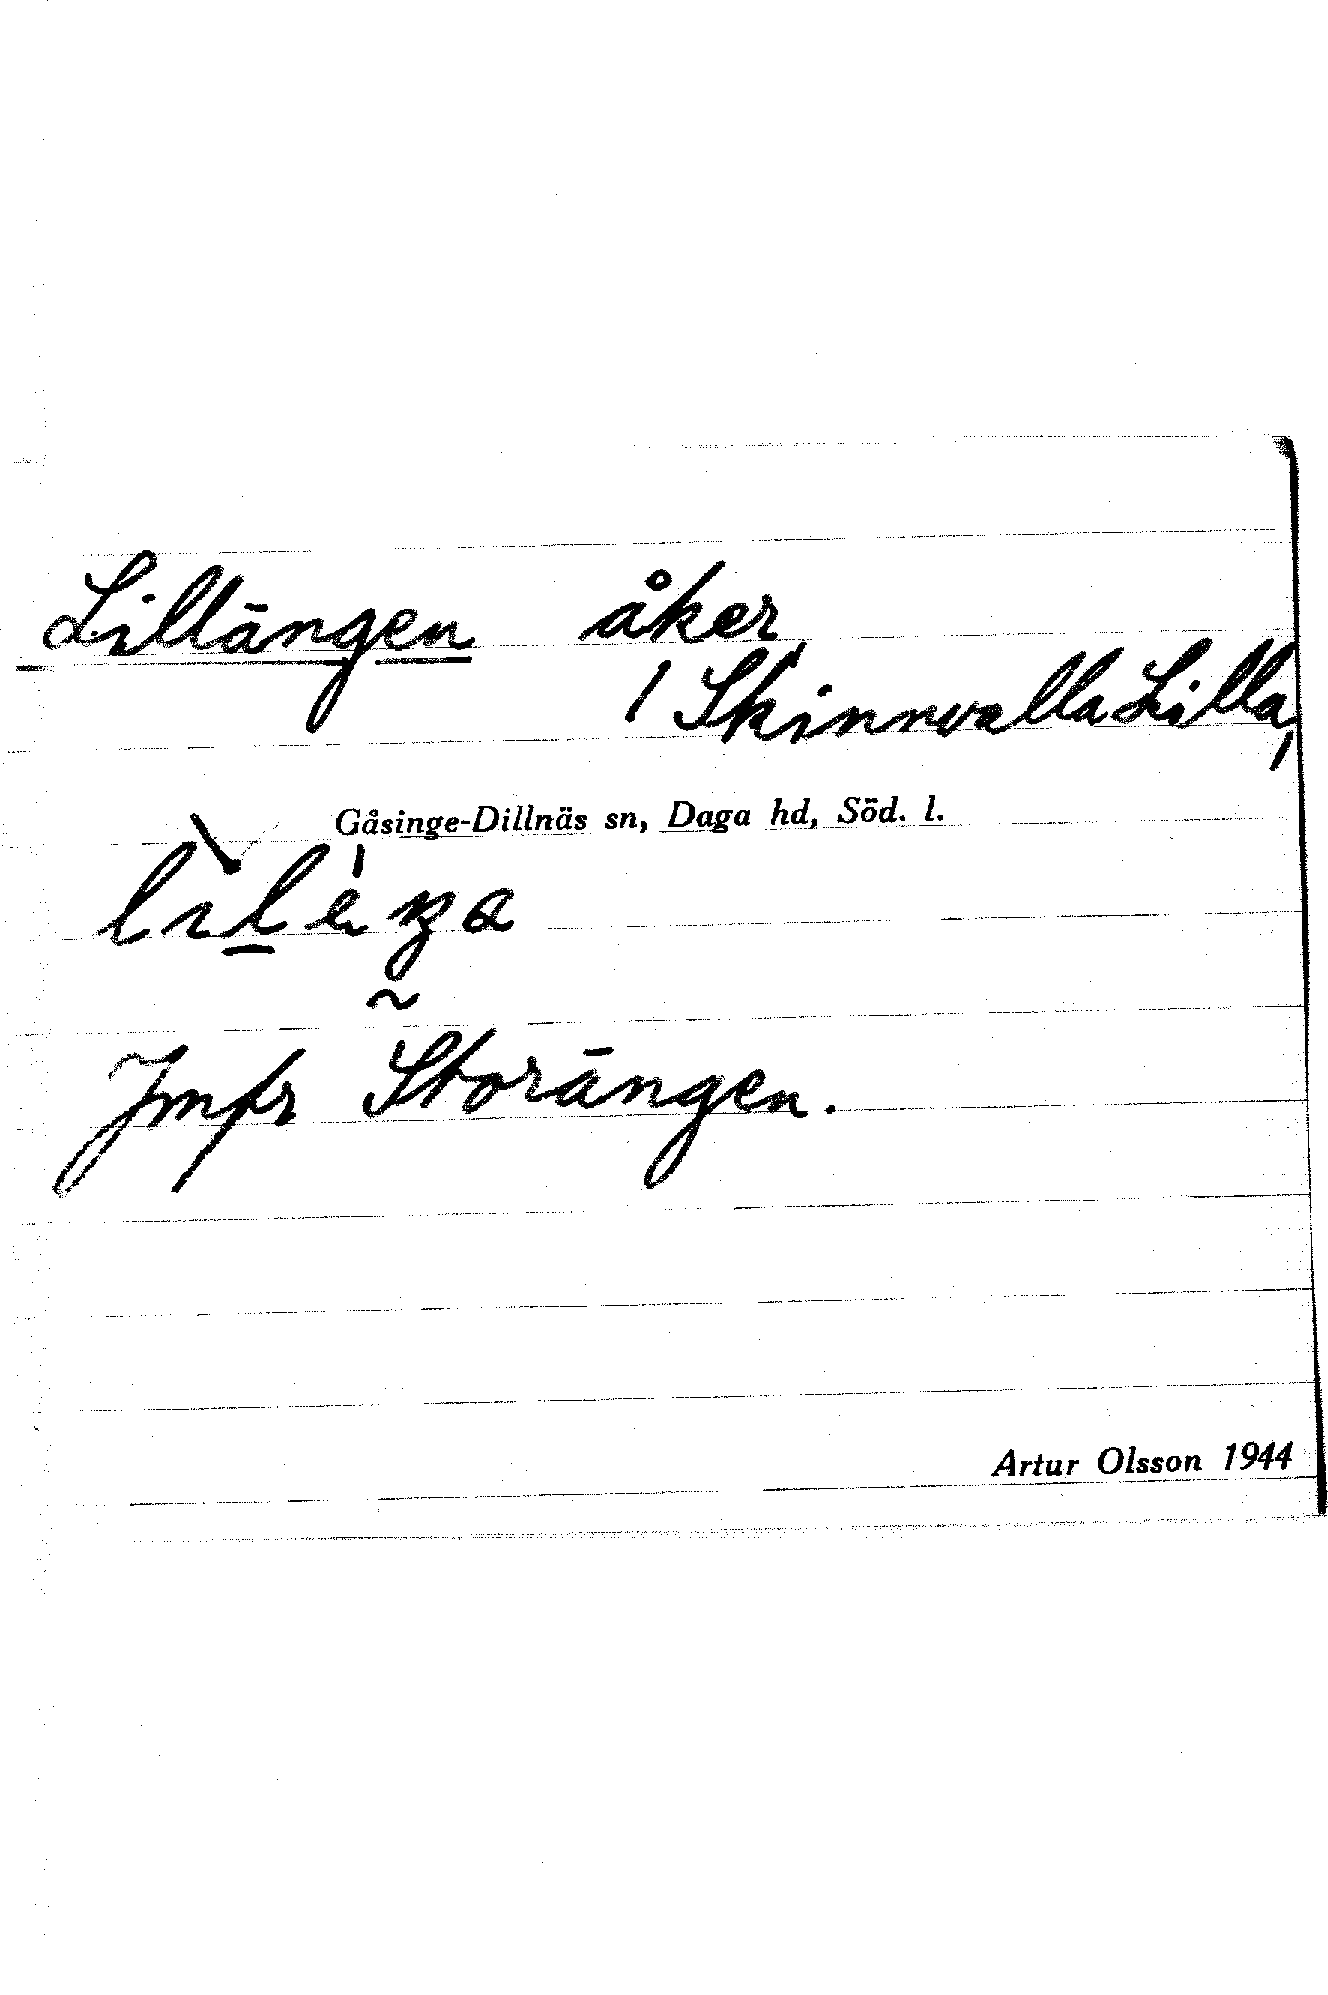 Lillängen åker
/ Skinnvalla Lilla,
Gåsinge-Dillnäs sn, Daga hd, Söd. l.
Jmfr Storängen.
Artur Olsson 1944